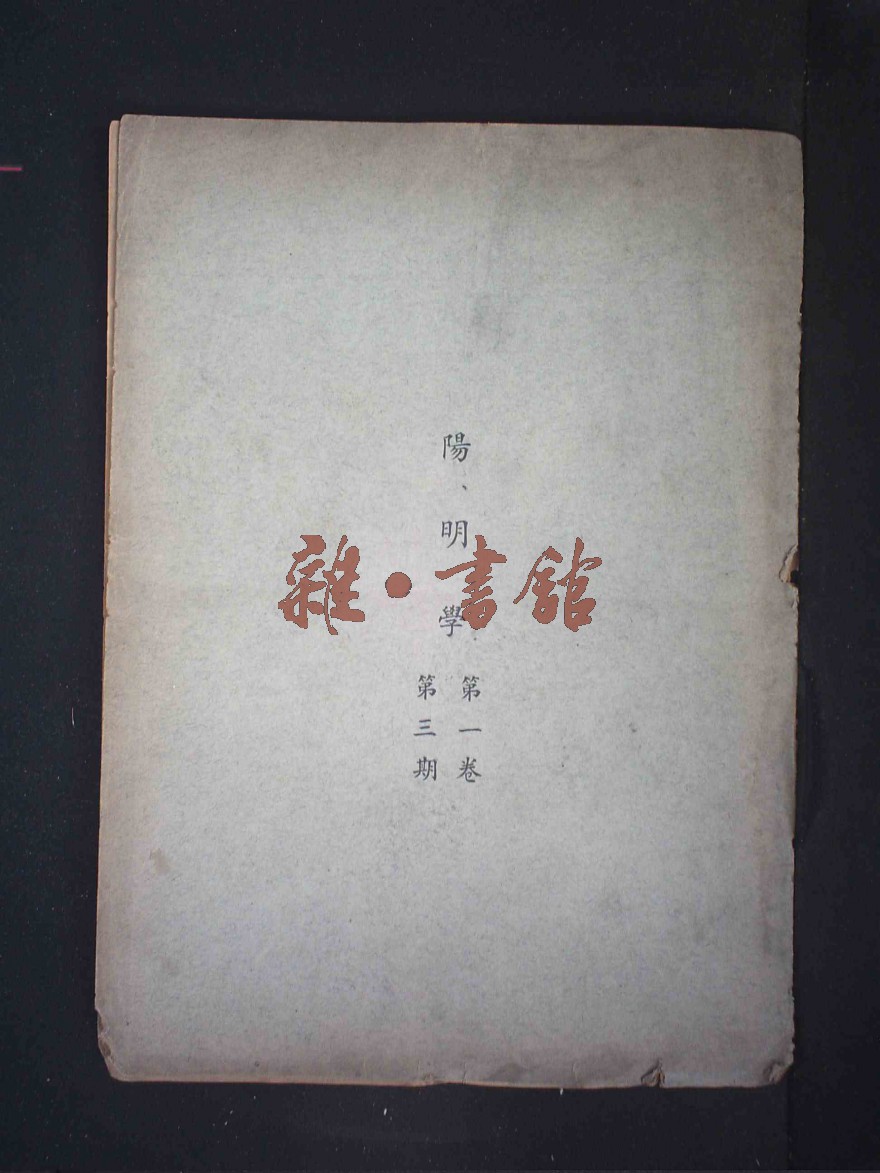 陽、明學
第一卷
第三期
雜·書館